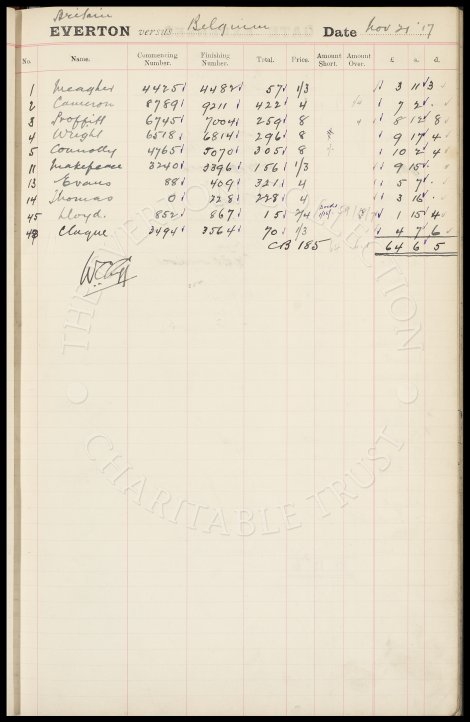 Britain
EVERTON versus Belgium Date Nov 21 '17
No. Name. Commencing Number. Finishing Number. Total. Price. Amount Short. Amount Over. £ s. d.
1 Meagher 4425 4482 57 1/3 3 11 3
2 Cameron 8789 9211 422 4 7 2 .
3 Proffitt 6745 7004 259 8 8 12 8
4 Wright 6518 6814 296 8 9 17 4
5 Connolly 4765 5070 305 8 10 2 4
11 Makepeace 3240 3396 156 1/3 9 15 .
13 Evans 88 409 321 4 5 7 .
14 Thomas 0 228 228 4 3 16 .
45 Lloyd 852 867 15 2/4 1 15 4
Clague 3494 3564 70 1/3 4 7 6
CB 185 64 6 5
THE EVERTON COLLECTION
CHARITABLE TRUST